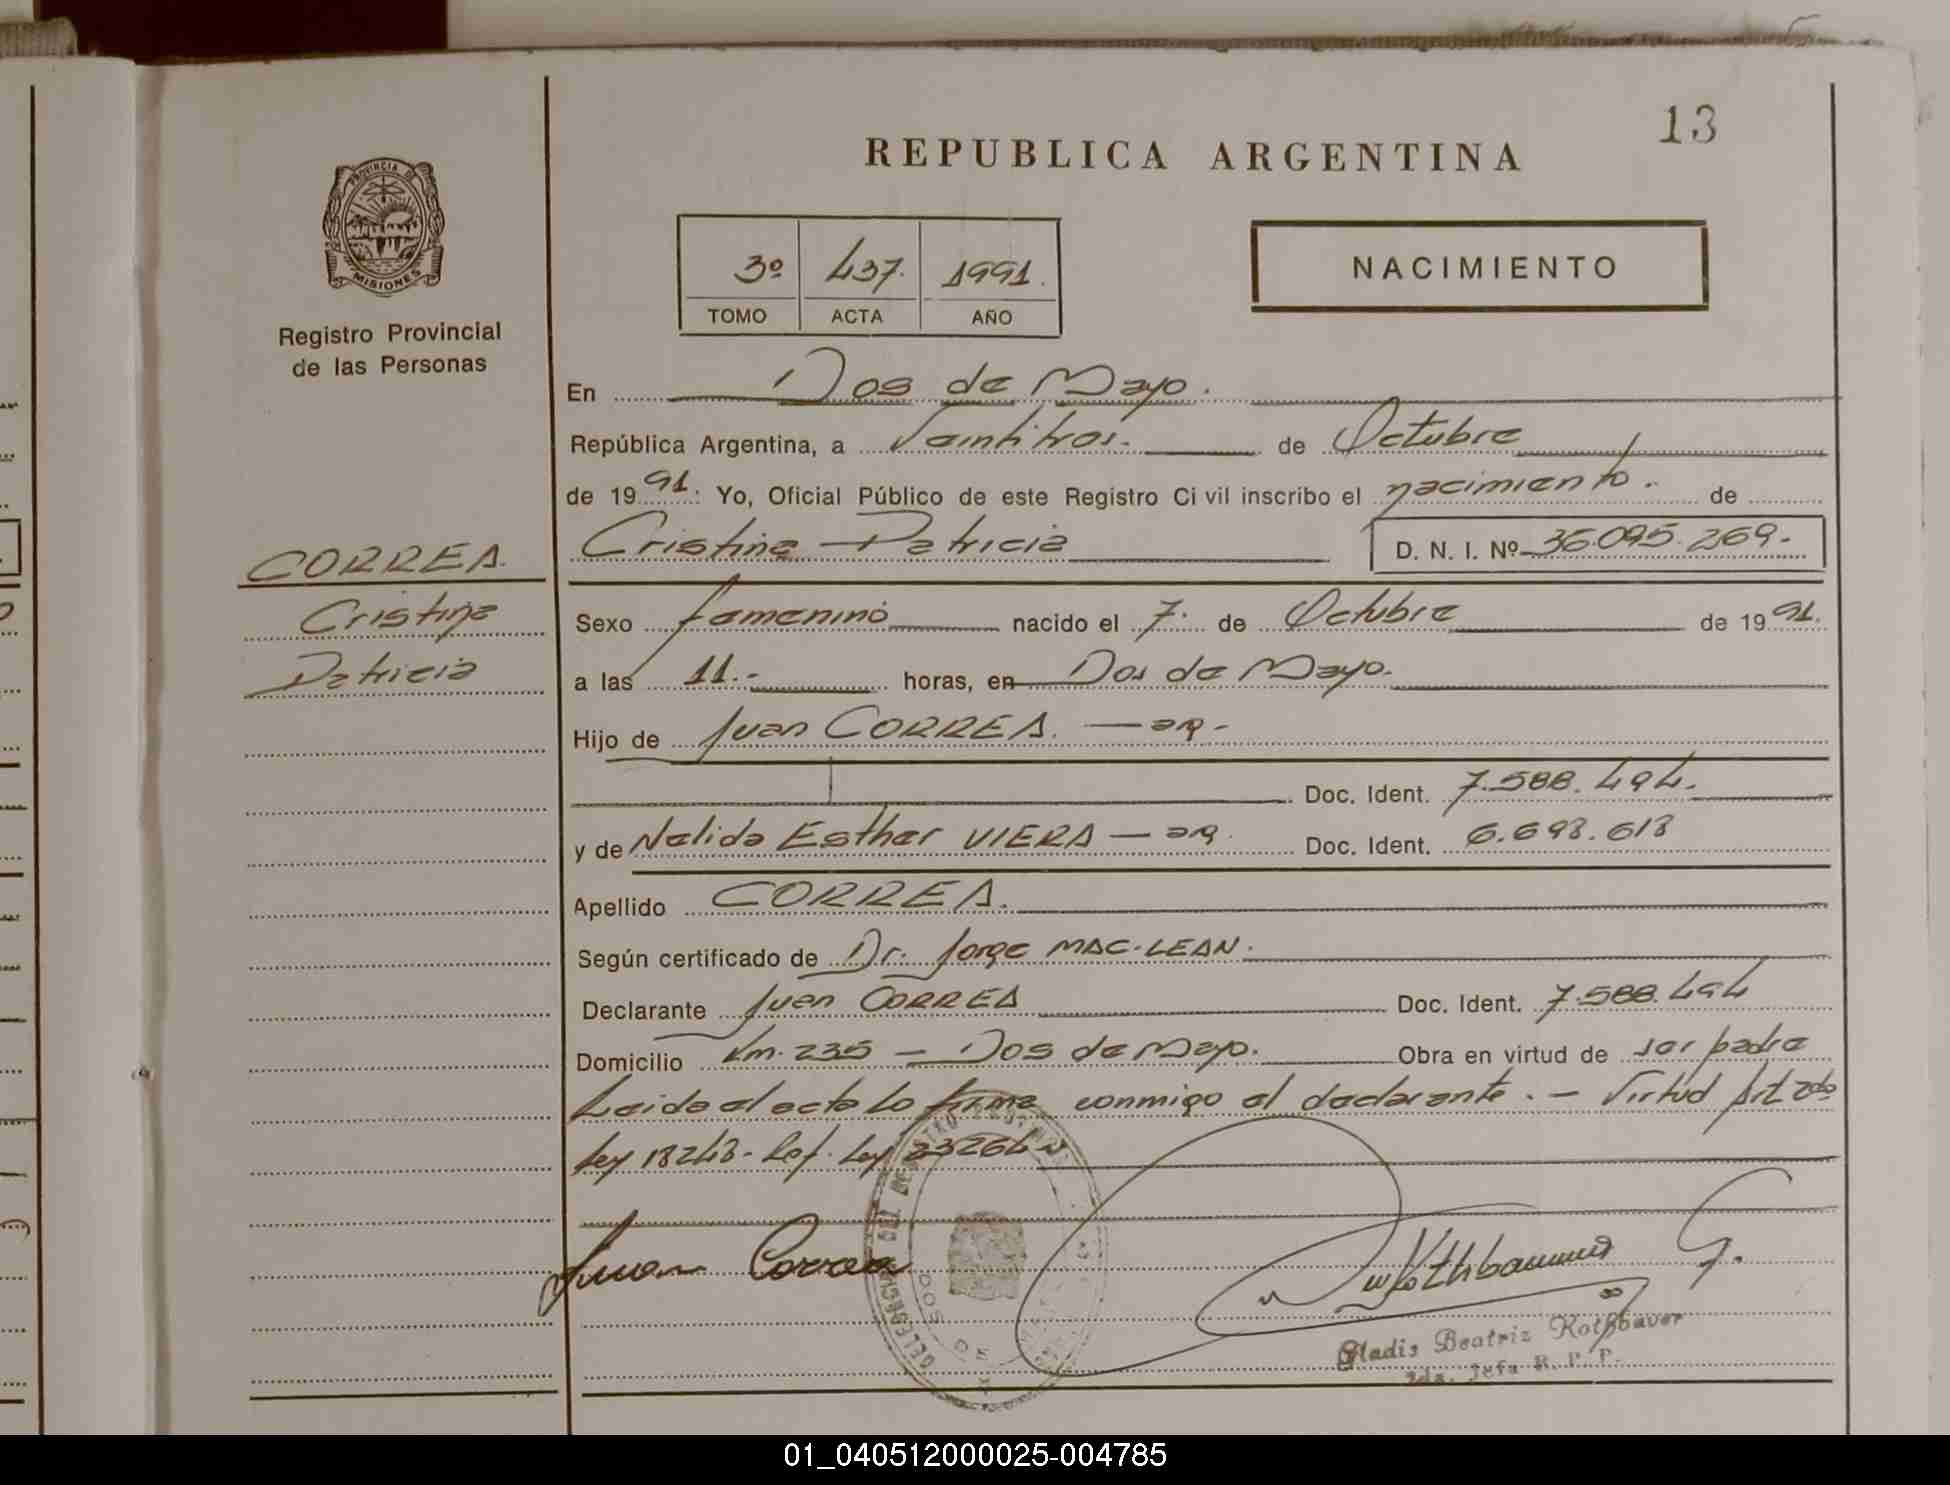 13
REPUBLICA ARGENTINA
PROVINCIA DE
MISIONES
Registro Provincial
de las Personas
NACIMIENTO
3º 437. 1991.
TOMO ACTA AÑO
En Dos de Mayo.
República Argentina, a Veintitres. de Octubre
de 1991: Yo, Oficial Público de este Registro Civil inscribo el nacimiento. de
Cristina Patricia D. N. I. Nº 36.095.269.-
CORREA.
Cristina
Patricia
Sexo femenino nacido el 7. de Octubre de 1991.
a las 11.- horas, en Dos de Mayo.
Hijo de Juan CORREA. — ar -
Doc. Ident. 7.588.494.
y de Nelida Esther VIERA — ar. Doc. Ident. 6.693.613
Apellido CORREA.
Según certificado de Dr. Jorge MAC-LEAN.
Declarante Juan CORREA Doc. Ident. 7.588.494
Domicilio Km. 235 — Dos de Mayo. Obra en virtud de ser padre
Leida el acta la firma conmigo el declarante. — Virtud Art 2do
Ley 18248- Ref. Ley 23264-
Juan Correa
Rothbauer G.
Gladis Beatriz Rothbauer
2da. Jefa R. P. P.
01_040512000025-004785